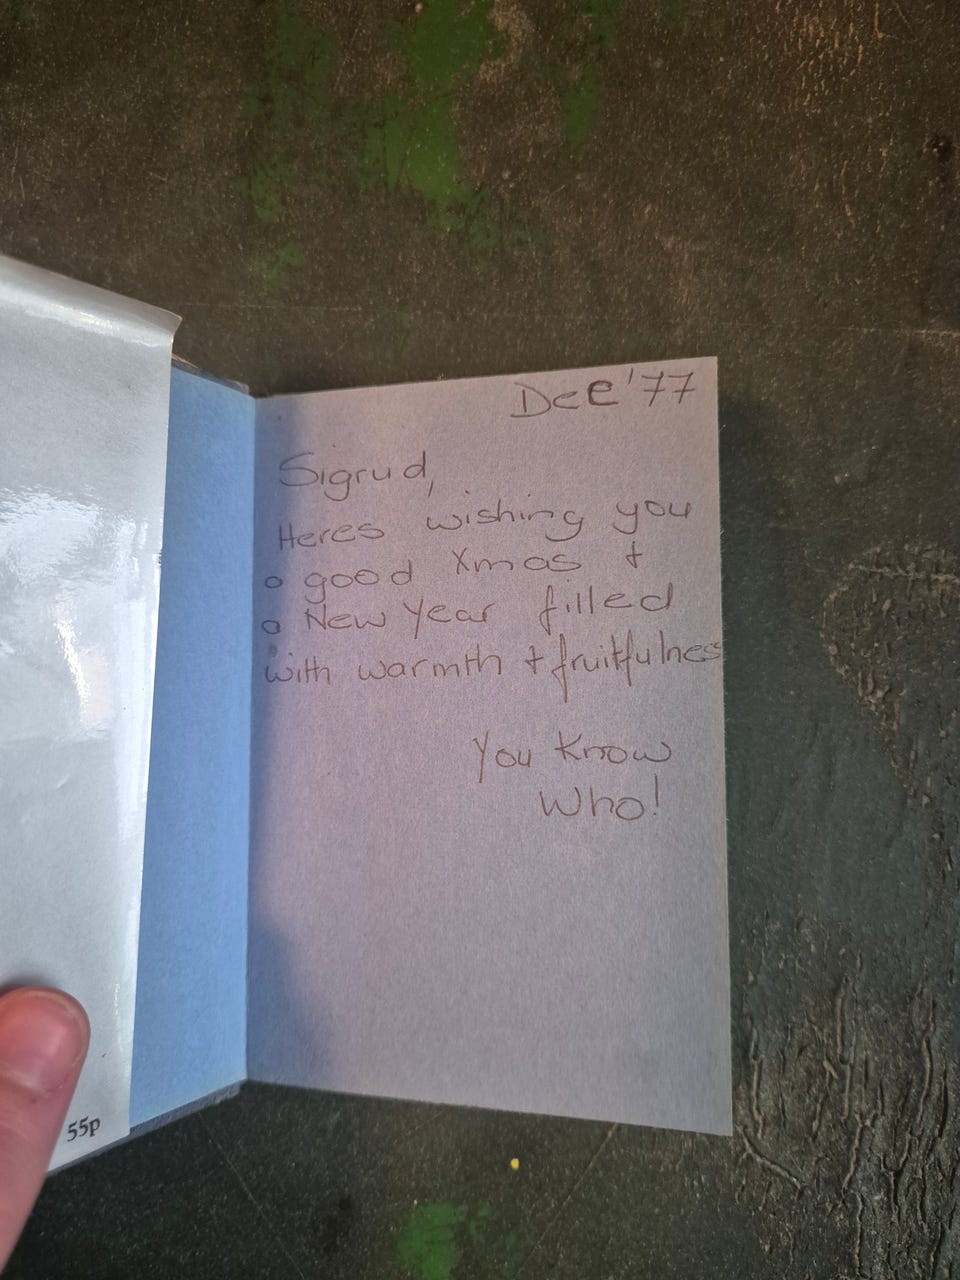 Dec '77
Sigrud,
Heres wishing you
a good Xmas +
a New Year filled
with warmth + fruitfulness
You Know
Who!
55p